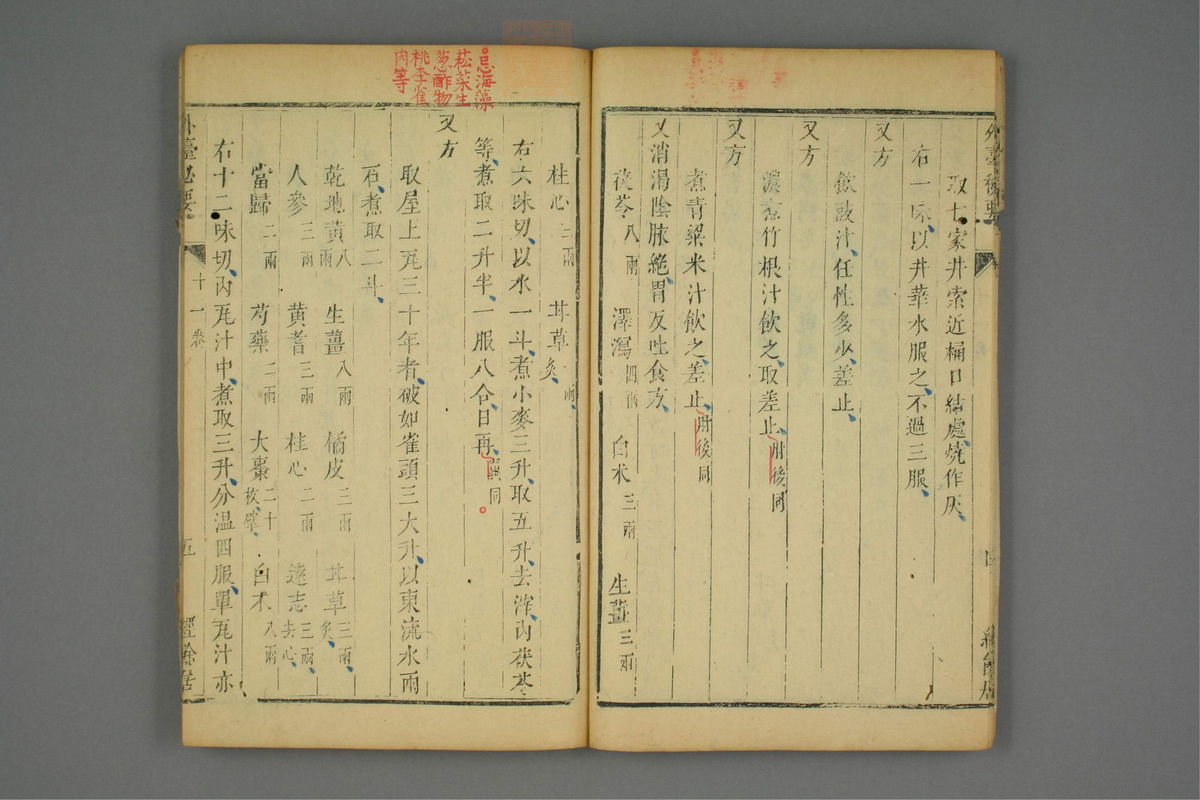 外臺秘要
取七家井索近桶口結處燒作灰
右一味以井華水服之不過三服
又方
飲豉汁任性多少差止
又方
濃煮竹根汁飲之取差止肘後同
又方
煮青粱米汁飲之差止肘後同
又消渴陰脉絶胃反吐食方
茯苓八兩 澤瀉四兩 白朮三兩 生薑三兩
桂心三兩 甘草一兩炙
右六味切以水一斗煮小麥三升取五升去滓内茯苓
等煮取二升半一服八合日再 同
又方
取屋上瓦三十年者破如雀頭三大升以東流水兩
石煮取二斗
乾地黄八兩 生薑八兩 橘皮三兩 甘草三兩炙
人參三兩 黄耆三兩 桂心二兩 遠志三兩去心
當歸二兩 芍藥二兩 大棗二十枚擘 白朮八兩
右十二味切内瓦汁中煮取三升分温四服單瓦汁亦
外臺秘要 十一卷 五 經餘居
忌海藻
菘菜生
葱酢物
桃李雀
肉等